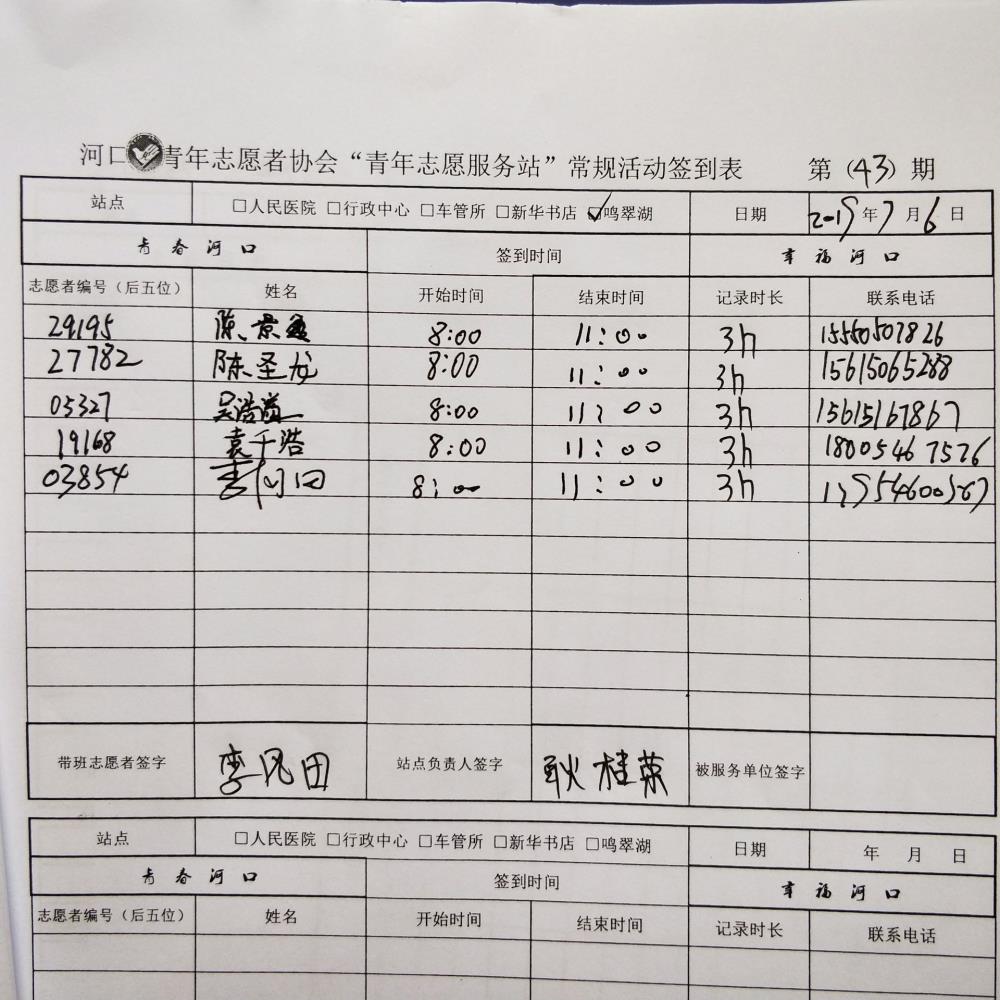 河口青年志愿者协会“青年志愿服务站”常规活动签到表 第（43）期
站点 □人民医院 □行政中心 □车管所 □新华书店 ☑鸣翠湖 日期 2019年7月6日
青春河口 签到时间 幸福河口
志愿者编号（后五位） 姓名 开始时间 结束时间 记录时长 联系电话
29195 陈景 8:00 11:00 3h 15550507826
27782 陈圣龙 8:00 11:00 3h 15615065288
05327 吴浩 8:00 11:00 3h 15615167867
19168 袁千浩 8:00 11:00 3h 18005467526
03854 李 8:00 11:00 3h
带班志愿者签字 李风田 站点负责人签字 耿桂荣 被服务单位签字
站点 □人民医院 □行政中心 □车管所 □新华书店 □鸣翠湖 日期 年 月 日
青春河口 签到时间 幸福河口
志愿者编号（后五位） 姓名 开始时间 结束时间 记录时长 联系电话